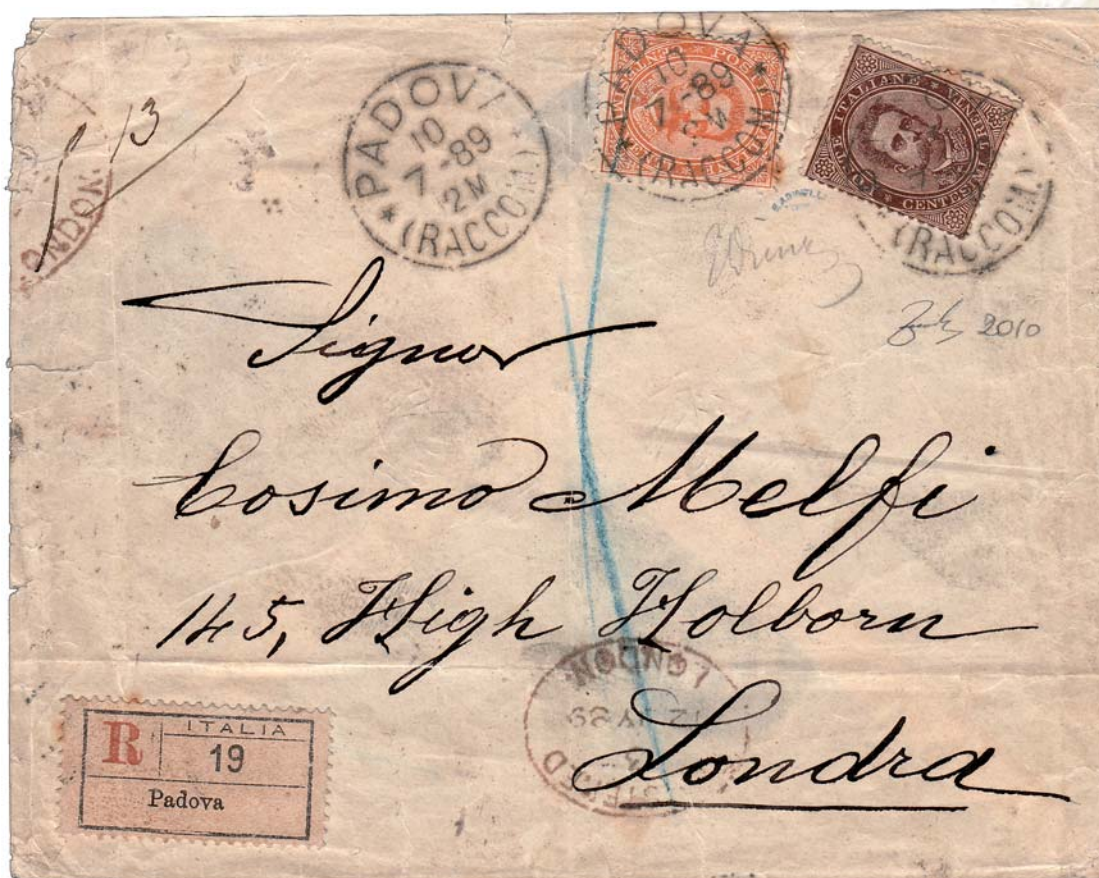 13
ONDON
PADOVA
10
7-89
2M
(RACCOM)
PADOVA
10
7-89
2M
(RACCOM)
POSTE ITALIANE
CENTESIMI TRENTA
(RACCOM)
2010
Signor
Cosimo Melfi
145, High Holborn
Londra
LONDON
R
ITALIA
19
Padova